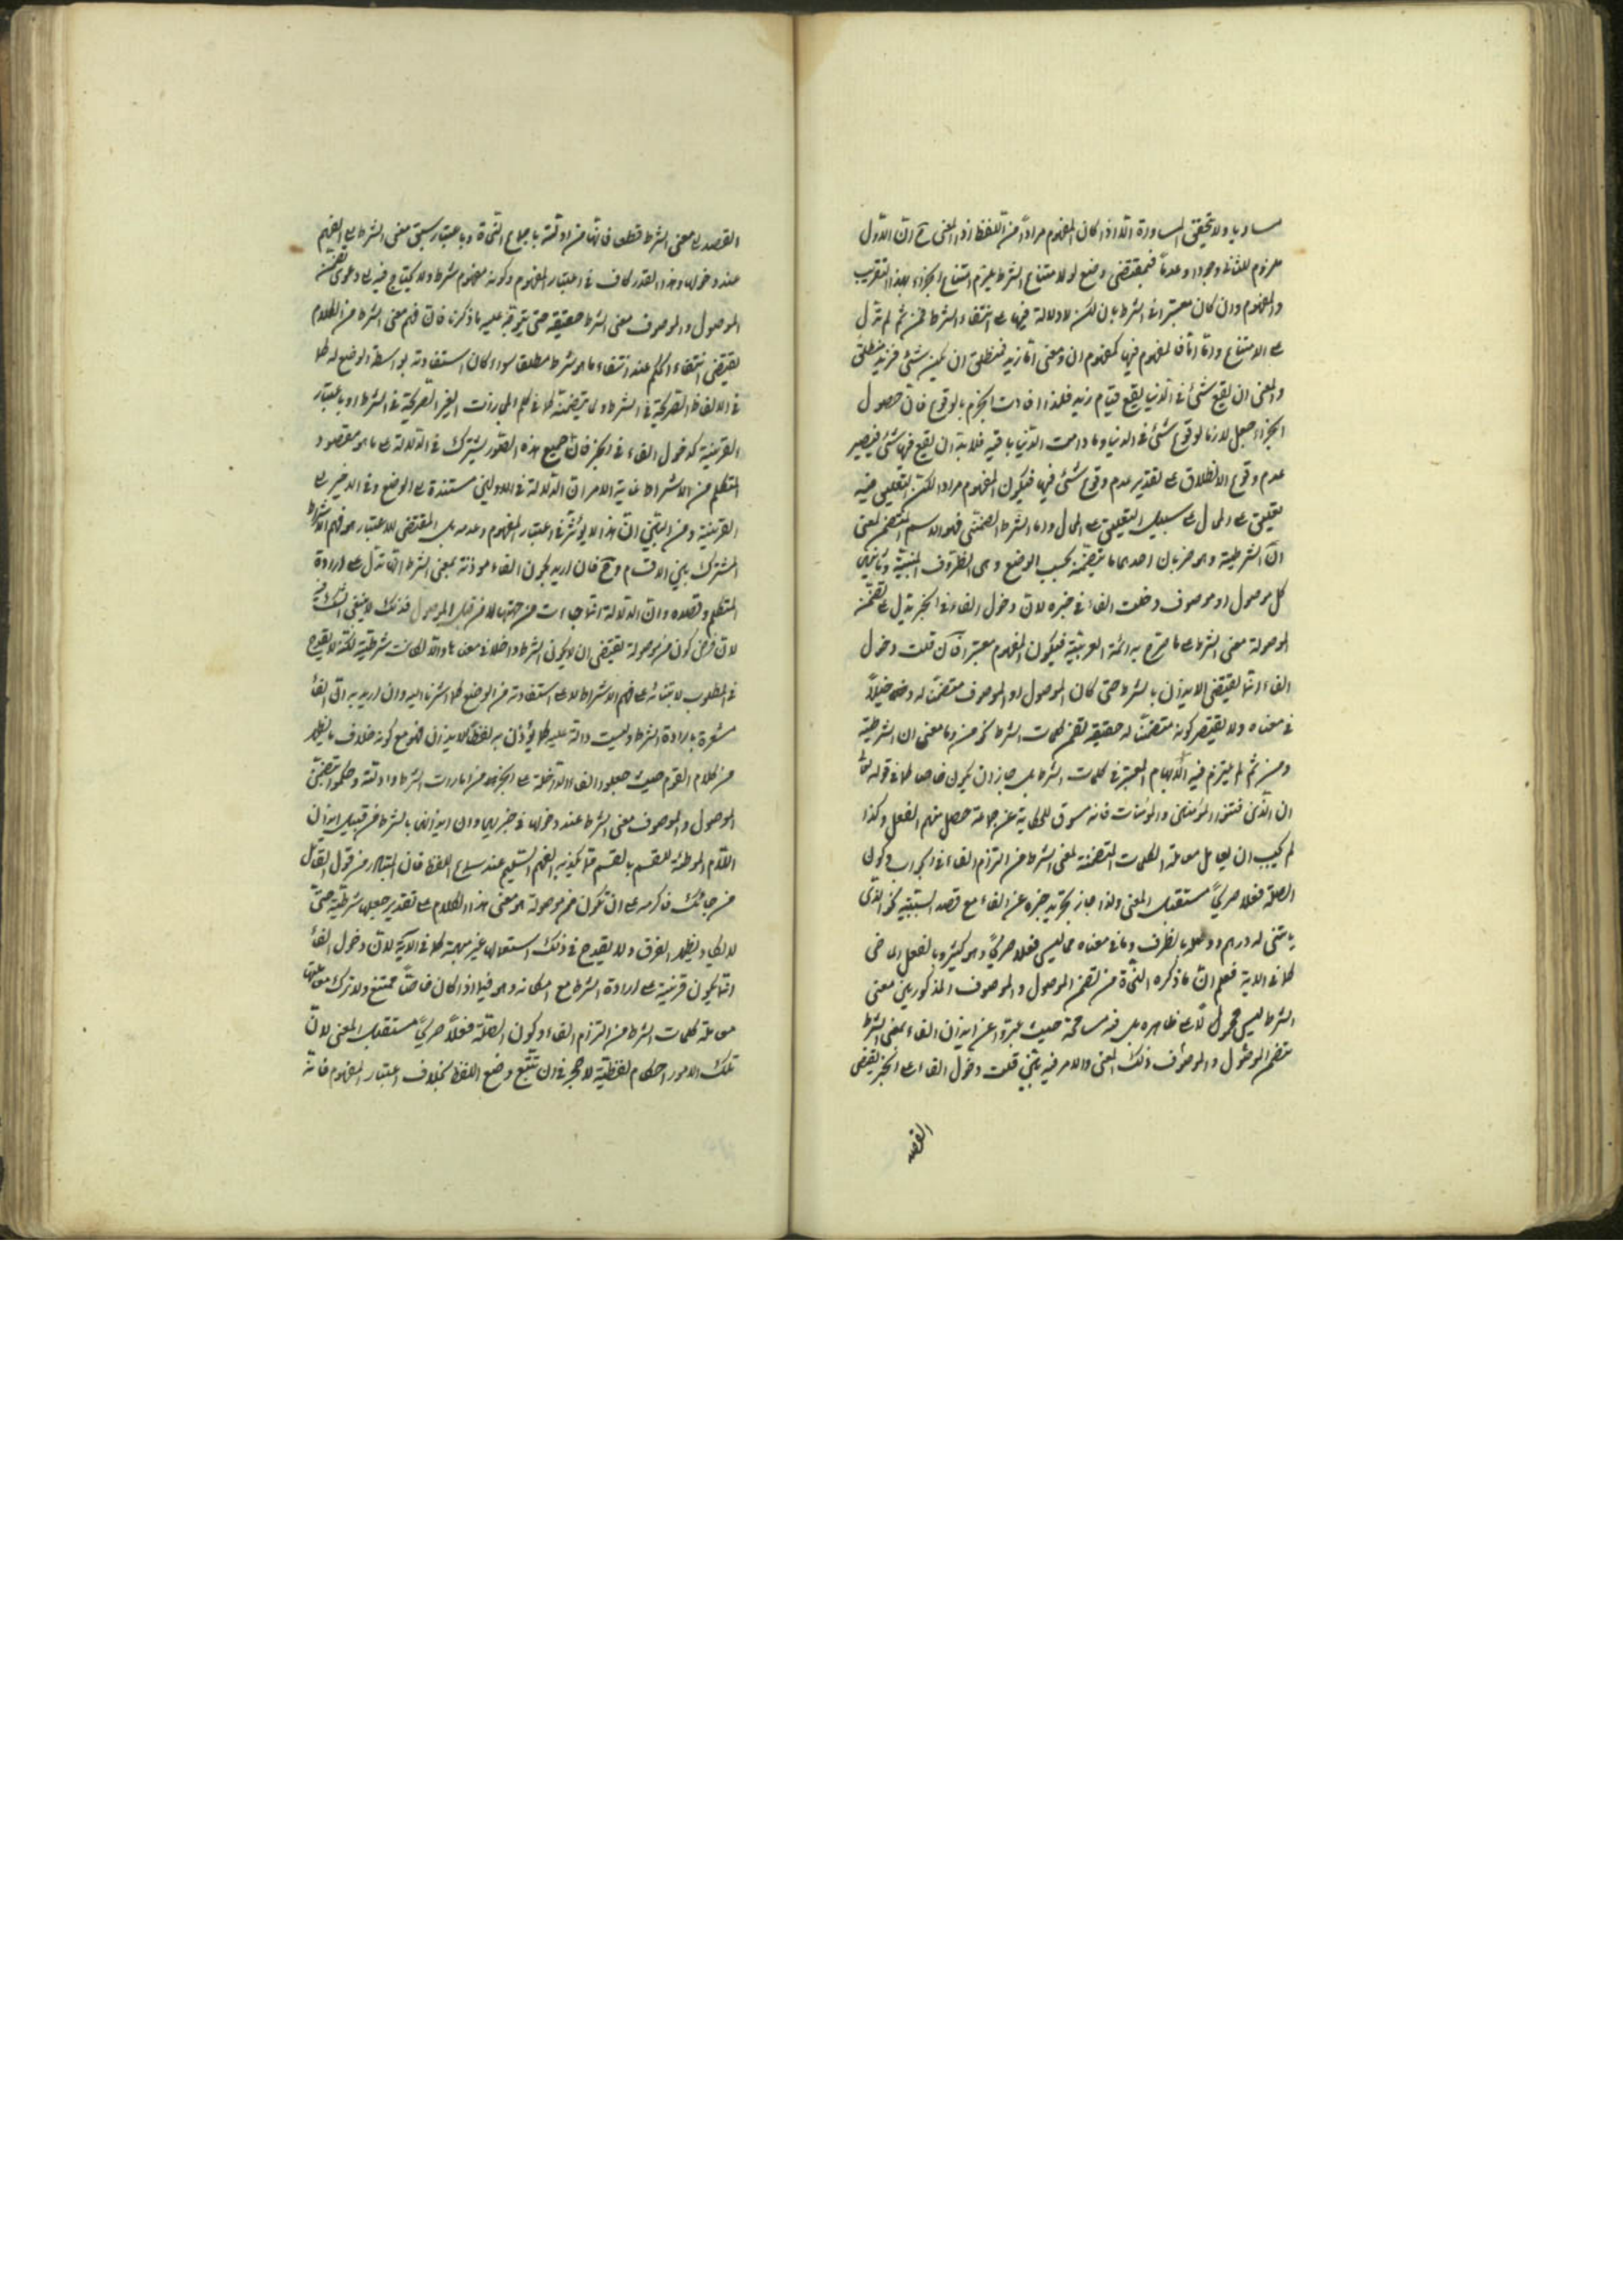 مساويا ولا تحقق المساورة الا اذا كان المفهوم مرادا من اللفظ اذ المعنى ح ان الاول
ملزوم للثانى وجودا وعدما فبمقتضى وضع لو لامتناع الشرط يلزم امتناع الجزاء بهذا التقريب
والمفهوم وان كان معتبرا فى الشرط بان لكن لا دلالة فيها على انتفاء الشرط فمن ثم لم تدل
على الامتناع واما اما فالمفهوم فيها كمفهوم ان ومعنى اما زيد فمنطلق ان يكن شئ فزيد منطلق
والمعنى ان يقع شئ فى الدنيا يقع قيام زيد فلهذا افادت الجزم بالوقوع فان حصول
الجزاء جعل لازما لوقوع شئ فى الدنيا وما دامت الدنيا باقية فلا بد ان يقع فيها شئ فيصير
عدم وقوع الانطلاق على تقدير عدم وقوع شئ فيها فيكون المفهوم مرادا لكن التعليق فيه
تعليق على المحال على سبيل التعليق على المحال واما الشرط الضمنى فهو الاسم المتضمن لمعنى
ان الشرطية وهو ضربان احدهما ما يتضمنه بحسب الوضع وهى الظروف المبنية وثانيهما
كل موصول او موصوف دخلت الفاء فى خبره لان دخول الفاء فى الخبر يدل على تضمنه
الموصولة معنى الشرط على ما صرح به ائمة العربية فيكون المفهوم معتبرا فان قلت دخول
الفاء انما يقتضى الايذان بالشرط حتى كان الموصول او الموصوف متضمنا له دخيلا
فى معناه ولا يقتضى كونه متضمنا له حقيقة تضمن كلمات الشرط نحو من وما معنى ان الشرطية
ومن ثم لم يلتزم فيه الابهام المعتبر فى كلمات الشرط بل جاز ان يكون خاصا كما فى قوله تعا
ان الذين فتنوا المؤمنين والمؤمنات فانه مسوق للحكاية عن جماعة حصل منهم الفعل وكذا
لم يجب ان يعامل معاملة الكلمات المتضمنة لمعنى الشرط من التزام الفاء فى الجواب وكون
الصلة فعلا صريحا مستقبل المعنى ولذا جاز تجريد خبره عن الفاء مع قصد السببية نحو الذى
ياتينى له درهم ووصله بالظرف وما فى معناه مما ليس فعلا صريحا وهو كثير وبالفعل الماضى
كما فى الاية فعلم ان ما ذكره النحاة من تضمن الموصول والموصوف المذكورين معنى
الشرط ليس محمولا على ظاهره بل فيه مسامحة حيث عبروا عن ايذان الفاء بمعنى الشرط
بتضمن الموصول والموصوف ذلك المعنى والامر فيه بيّن قلت دخول الفاء على الخبر يقتضى
القصد
القصد الى معنى الشرط قطعا فانها من ادلته باجماع النحاة وباعتبار سبق معنى الشرط الى الفهم
عند دخولها وهذا القدر كاف فى اعتبار المفهوم وكونه مفهوم شرط ولا يحتاج فيه الى دعوى تضمن
الموصول والموصوف معنى الشرط حقيقة حتى يتوجه عليه ما ذكرنا فان فهم معنى الشرط من الكلام
يقتضى انتفاء الحكم عند انتفاء ما هو شرط مطلقا سواء كان استفادته بواسطة الوضع له كما
فى الالفاظ الصريحة فى الشرط ولما يتضمنه كما فى كلم المجازات الغير الصريحة فى الشرط او باعتبار
القرينة كدخول الفاء فى الخبر فان جميع هذه الصور يشترك فى الدلالة على ما هو مقصود
المتكلم من الاشتراط غاية الامر ان الدلالة فى الاوليين مستندة الى الوضع وفى الاخير الى
القرينة ومن البيّن ان هذا لا يؤثر فى اعتبار المفهوم وعدمه بل المقتضى للاعتبار هو فهم الاشتراط
المشترك بين الاقسام وح فان اريد بكون الفاء موذنة بمعنى الشرط انها تدل على ارادة
المتكلم وقصده وان الدلالة انما جاءت من جهتها لا من قبل الموصول فذلك لا ينبغى الشك فيه
لان فرض كون من موصولة يقتضى ان لا يكون الشرط داخلا فى معناها والا لكانت شرطية لكنه لا يقدح
فى المطلوب لابتنائه على فهم الاشتراط لا على استفادته من الوضع كما اشرنا اليه وان اريد به ان الفاء
مشعرة بارادة الشرط وليست دالة عليه كما يؤذن به لفظ الايذان فهو مع كونه خلاف ما يظهر
من كلام القوم حيث جعلوا الفاء الداخلة على الجزاء من امارات الشرط وادلته وحكموا بتضمن
الموصول والموصوف معنى الشرط عند دخولها فى خبرهما وان ايذانها بالشرط من قبيل ايذان
اللام الموطئة للقسم بالقسم مما يكذبه الفهم المستقيم عند سماع اللفظ فان المتبادر من قول القائل
من جاءك فاكرمه على ان تكون من موصولة هو معنى هذا الكلام على تقدير جعلها شرطية حتى
لا يكاد يظهر الفرق ولا يقدح فى ذلك استعمالها غير مبهمة كما فى الآية لان دخول الفاء
انما يكون قرينة على ارادة الشرط مع امكانه وهو فيما اذا كان خاصا ممتنع ولا ترك معاملتها
معاملة كلمات الشرط من التزام الفاء وكون الصلة فعلا صريحا مستقبل المعنى لان
تلك الامور احكام لفظية لا حجر فى ان تتبع وضع اللفظ بخلاف اعتبار المفهوم فانه